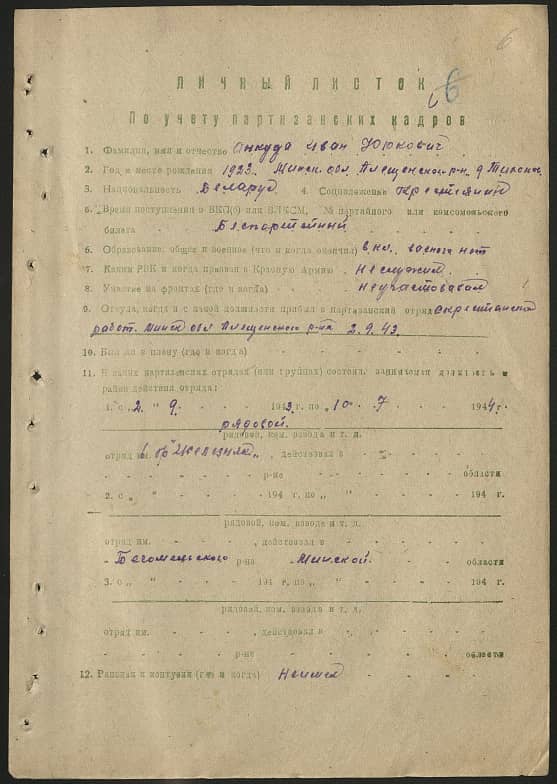 6
ЛИЧНЫЙ ЛИСТОК
6
По учету партизанских кадров
1. Фамилия, имя и отчество Анкуда Иван Юркович
2. Год и место рождения 1923. Минск. обл. Плещенского р-н. д
3. Национальность Беларус 4. Соцположение крестянин
5. Время поступления в ВКП(б) или ВЛКСМ, № партийного или комсомольского
билета Беспартейный
6. Образование: общее и военное (что и когда окончил) кл. военого нет
7. Каким РВК и когда призван в Красную Армию Неслужил.
8. Участие на фронтах (где и когда) Неучаствовал
9. Откуда, когда и с какой должности прибыл в партизанский отряд
работ. Минск обл Плещенского р-на 2.9.43.
10. Был ли в плену (где и когда)
11. В каких партизанских отрядах (или группах) состоял, занимаемая должность и
район действия отряда:
1. с „2 " 9. 1943 г. по „10 " 7 1944 г.
рядовой.
рядовой, ком. взвода и т. д.
отряд им. бр Железняк", действовал в
р-не области
2. с „ " 194 г. по „ " 194 г.
рядовой, ком. взвода и т. д.
отряд им. , действовал в
Бегомельского р-не Минской. области
3. с „ " 194 г. по „ " 194 г.
рядовой, ком. взвода и т. д.
отряд им. , действовал в
р-не области
12. Ранения и контузии (где и когда) Неимел